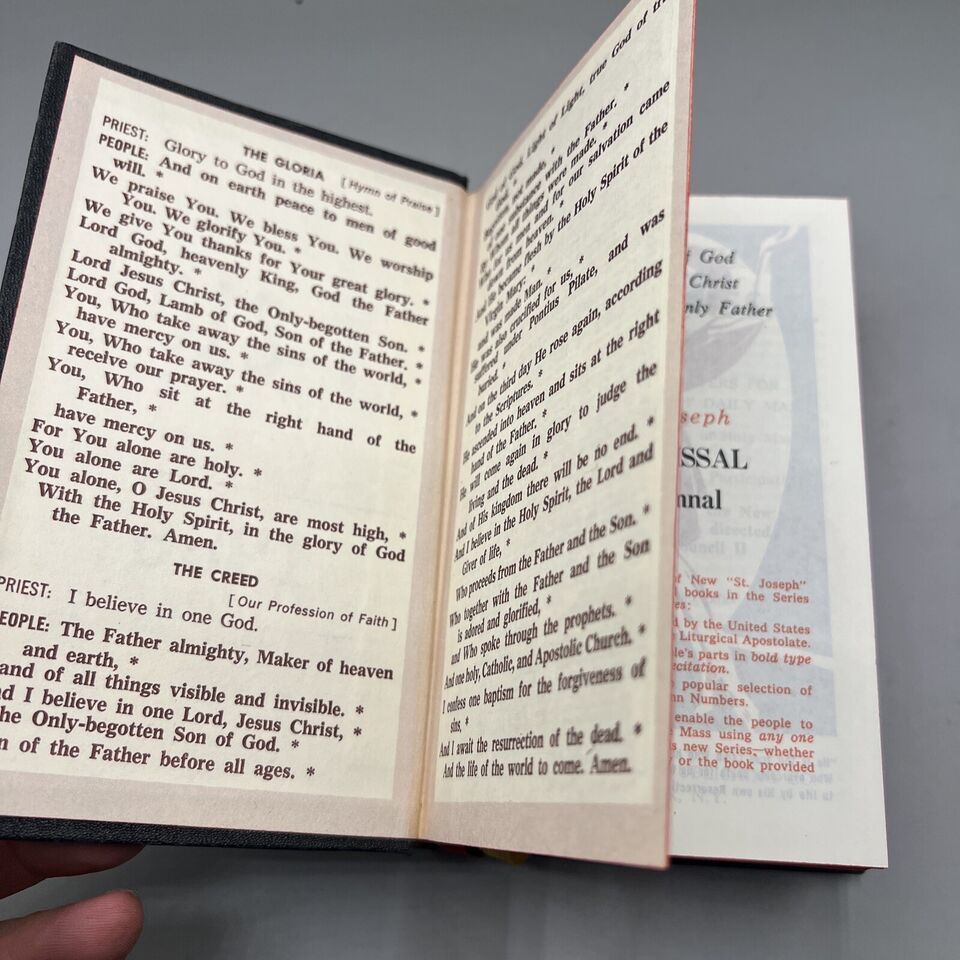 THE GLORIA
[ Hymn of Praise ]
PRIEST: Glory to God in the highest.
PEOPLE: And on earth peace to men of good
will. *
We praise You. We bless You. We worship
You. We glorify You. *
We give You thanks for Your great glory. *
Lord God, heavenly King, God the Father
almighty. *
Lord Jesus Christ, the Only-begotten Son. *
Lord God, Lamb of God, Son of the Father. *
You, Who take away the sins of the world, *
have mercy on us. *
You, Who take away the sins of the world, *
receive our prayer. *
You, Who sit at the right hand of the
Father, *
have mercy on us. *
For You alone are holy. *
You alone are Lord. *
You alone, O Jesus Christ, are most high, *
With the Holy Spirit, in the glory of God
the Father. Amen.
THE CREED
[ Our Profession of Faith ]
PRIEST: I believe in one God.
EOPLE: The Father almighty, Maker of heaven
and earth, *
and of all things visible and invisible. *
d I believe in one Lord, Jesus Christ, *
he Only-begotten Son of God. *
n of the Father before all ages. *
of God, Light of Light, true God of
made, *
substance with the Father. *
all things were made. *
for us men and for our salvation came
down from heaven. *
And He became flesh by the Holy Spirit of the
Virgin Mary: *
and was made Man. *
He was also crucified for us, *
suffered under Pontius Pilate, and was
buried. *
And on the third day He rose again, according
to the Scriptures. *
He ascended into heaven and sits at the right
hand of the Father. *
He will come again in glory to judge the
living and the dead. *
And of His kingdom there will be no end. *
And I believe in the Holy Spirit, the Lord and
Giver of life, *
Who proceeds from the Father and the Son. *
Who together with the Father and the Son
is adored and glorified, *
and Who spoke through the prophets. *
And one holy, Catholic, and Apostolic Church. *
I confess one baptism for the forgiveness of
sins. *
And I await the resurrection of the dead. *
And the life of the world to come. Amen.
f God
Christ
nly Father
seph
SSAL
nnal
of New "St. Joseph"
books in the Series
es:
d by the United States
Liturgical Apostolate.
le's parts in bold type
ecitation.
popular selection of
n Numbers.
enable the people to
Mass using any one
s new Series, whether
or the book provided